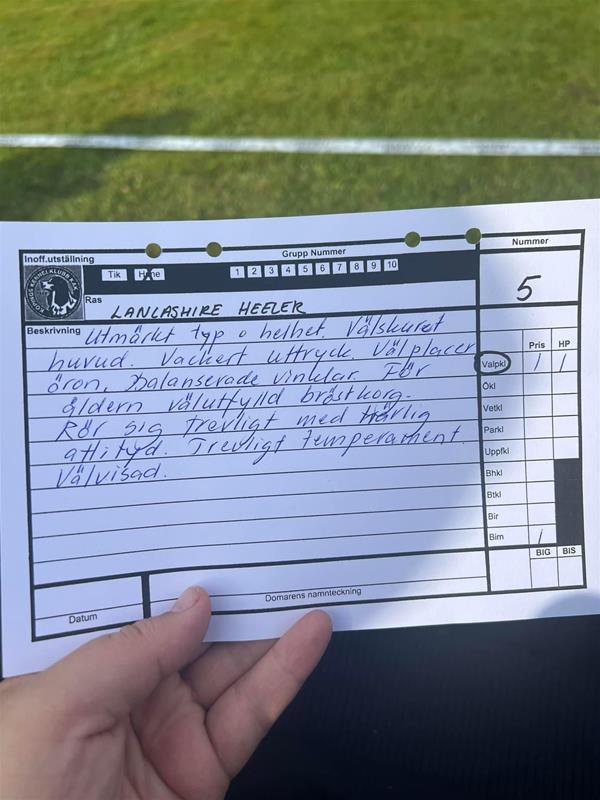 Inoff.utställning
Grupp Nummer
Nummer
Tik Hane 1 2 3 4 5 6 7 8 9 10
5
Ras LANCASHIRE HEELER
Beskrivning Utmärkt typ o helhet. Välskuret
huvud. Vackert uttryck. Välplacer
öron. Balanserade vinklar. För
åldern välutfylld bröstkorg.
Rör sig trevligt med härlig
attityd. Trevligt temperament.
Välvisad.
Pris HP
Valpkl 1 1
Ökl
Vetkl
Parkl
Uppfkl
Bhkl
Btkl
Bir
Bim /
BIG BIS
Datum
Domarens namnteckning